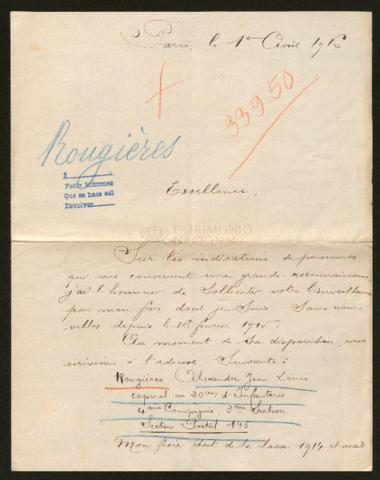 Paris, le 1er Avril 1916
+
33950
Rougières
A
Pedir informes
Que se hace así
Devolver
Excellence,
PATRIMONIO
NACIONAL
Sur les indications de personnes
qui vous conservent une grande reconnaissance,
j'ai l'honneur de solliciter votre bienveillance
pour mon frère dont je suis sans nou-
velles depuis le 16 février 1915.
Au moment de sa disparition, nous
écrivions à l'adresse suivante :
Rougières Alexandre Jean Louis
caporal au 20ème d'Infanterie
4ème Compagnie, 3ème Section
Secteur Postal 145
Mon frère était de la classe 1914 et avait